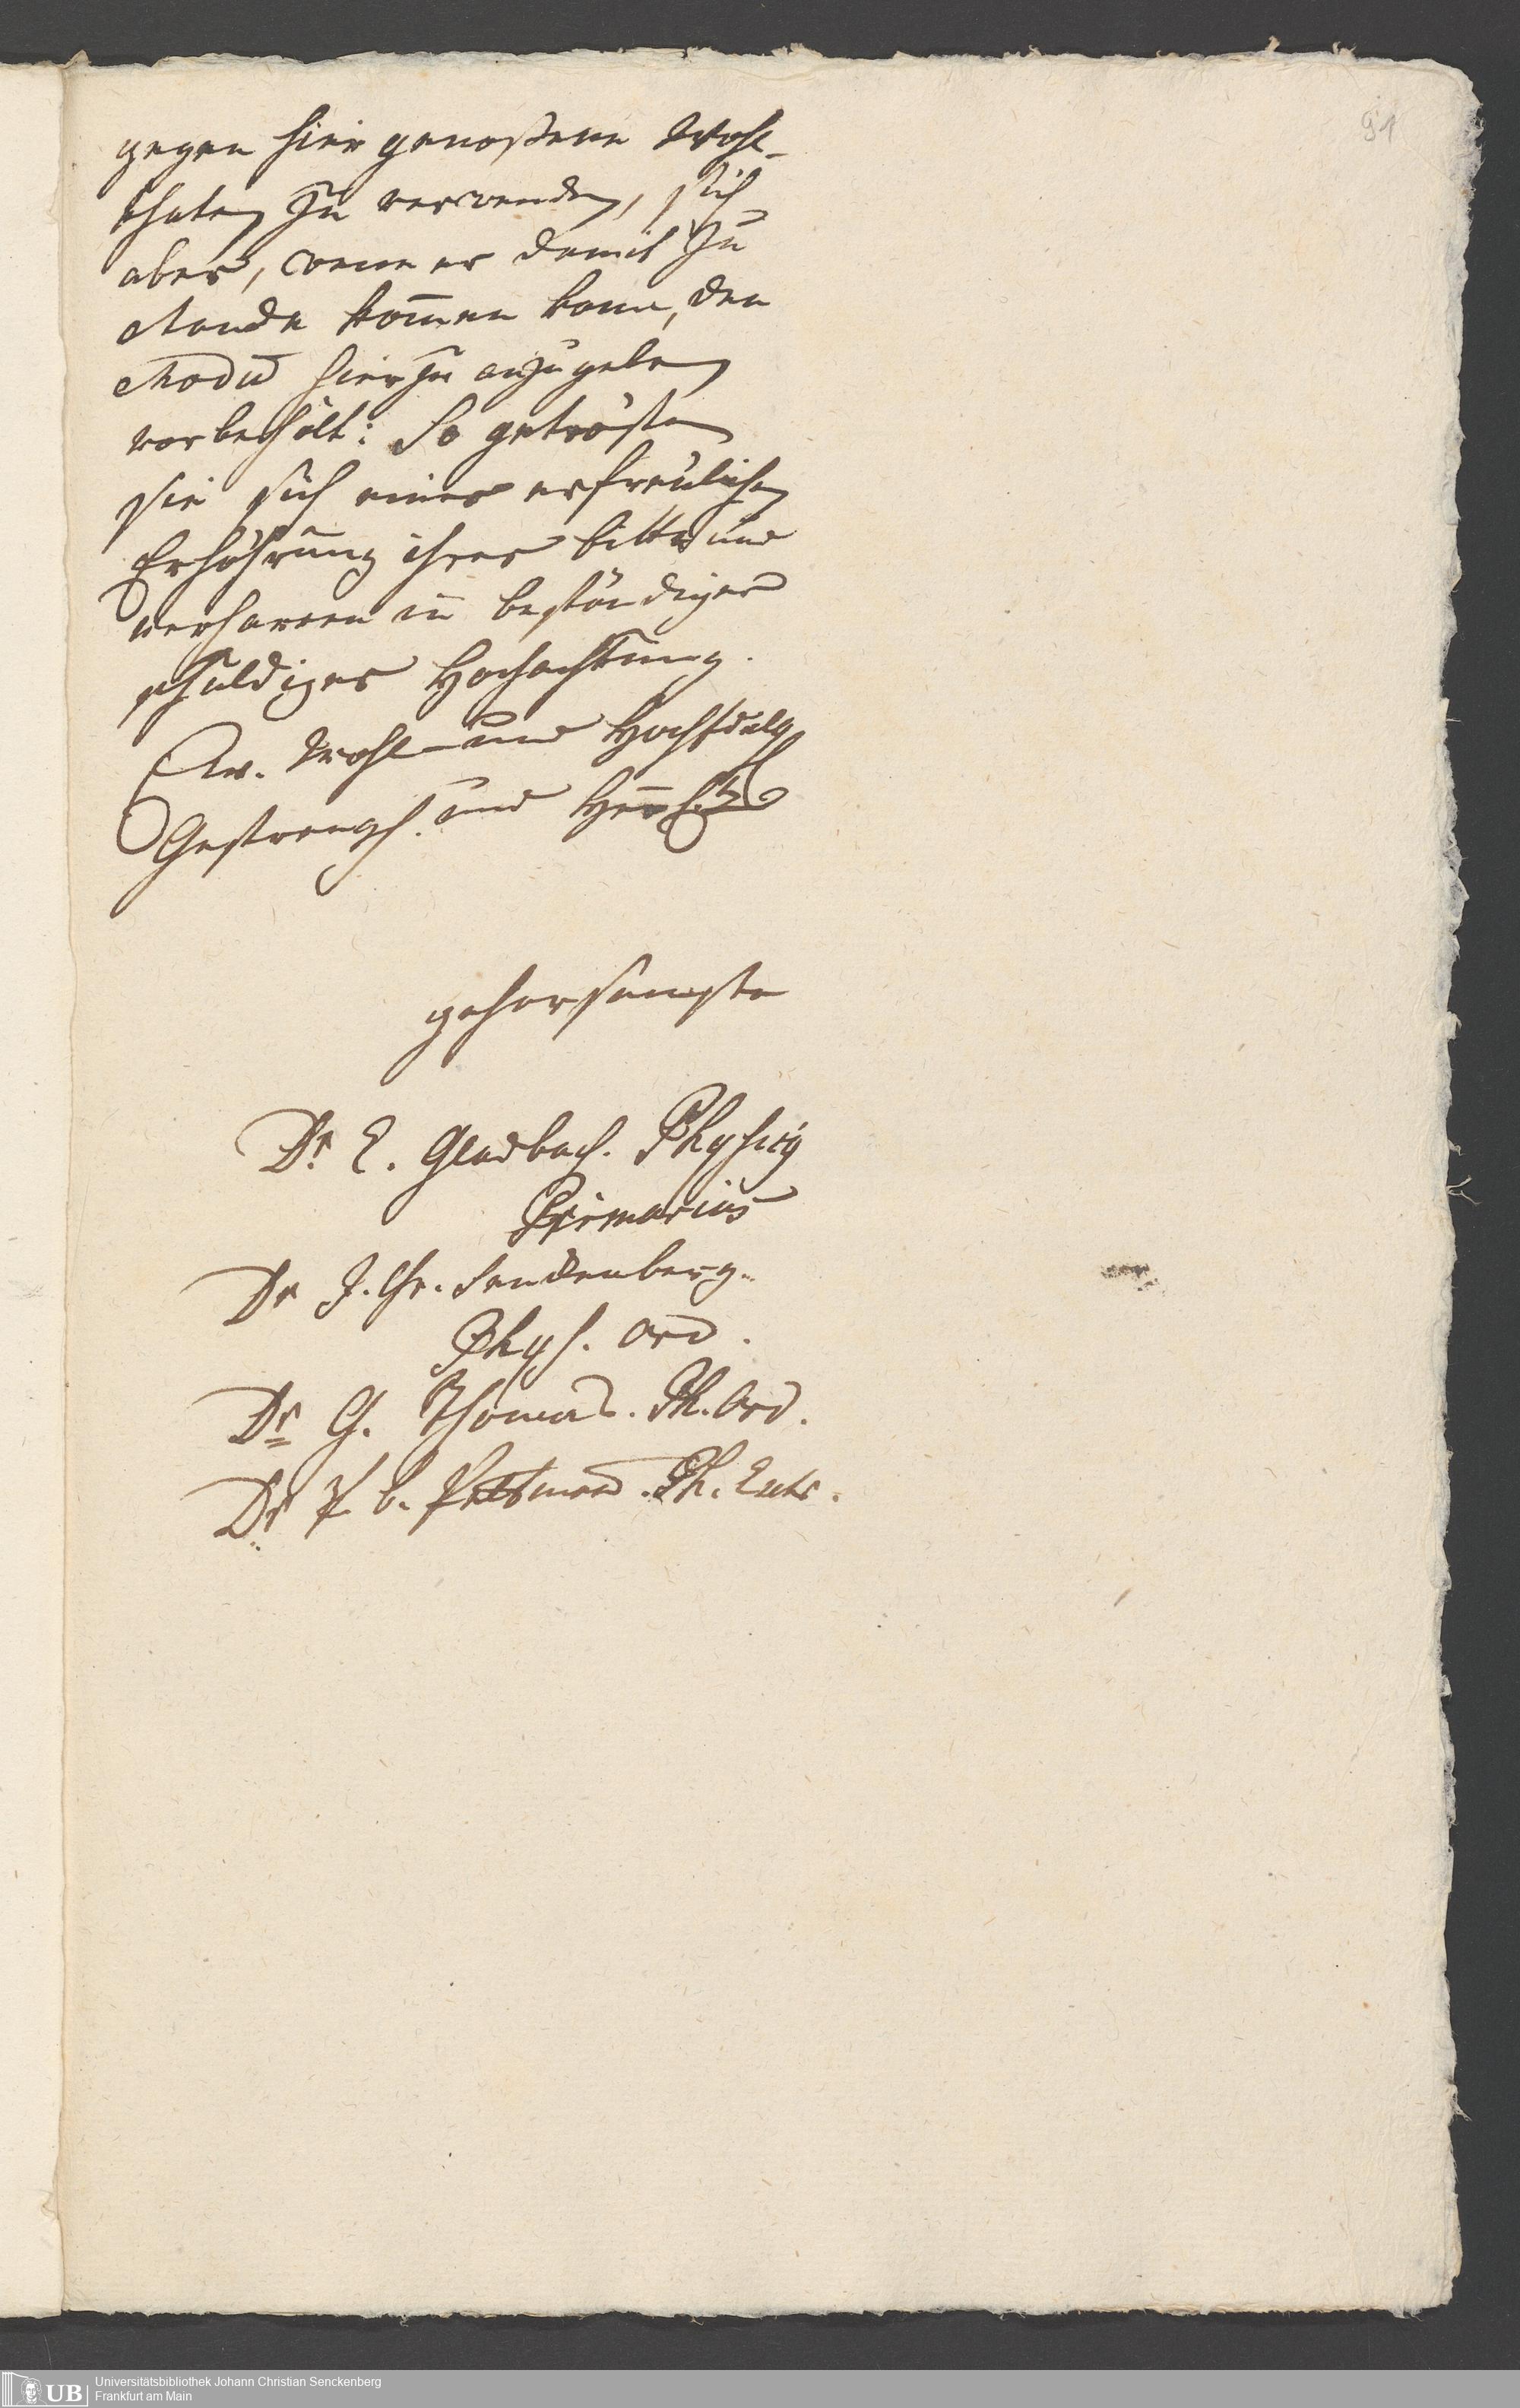 91
gegen hier genoßene Wohl-
thaten zu verwenden, sich
aber, wenn er damit zu
stande kom̅en kann, den
Modum hierzu anzugeben
vorbehält: So getrösten
sie sich einer erfreulichen
Erhöhrung ihrer bitte und
verharren in beständiger
schuldiger Hochachtung.
Ew. Wohl- und Hochfdelg
Gestrengh. und Herrl.
gehorsamste
Dr. E. Gladbach. Physicus
Primarius
Dr J. Chr. Senckenberg.
Phys. Ord.
Dr G. Thomas. Ph. Ord.
Dr P. B. Pettmann. Ph. Extr.
UB
Universitätsbibliothek Johann Christian Senckenberg
Frankfurt am Main